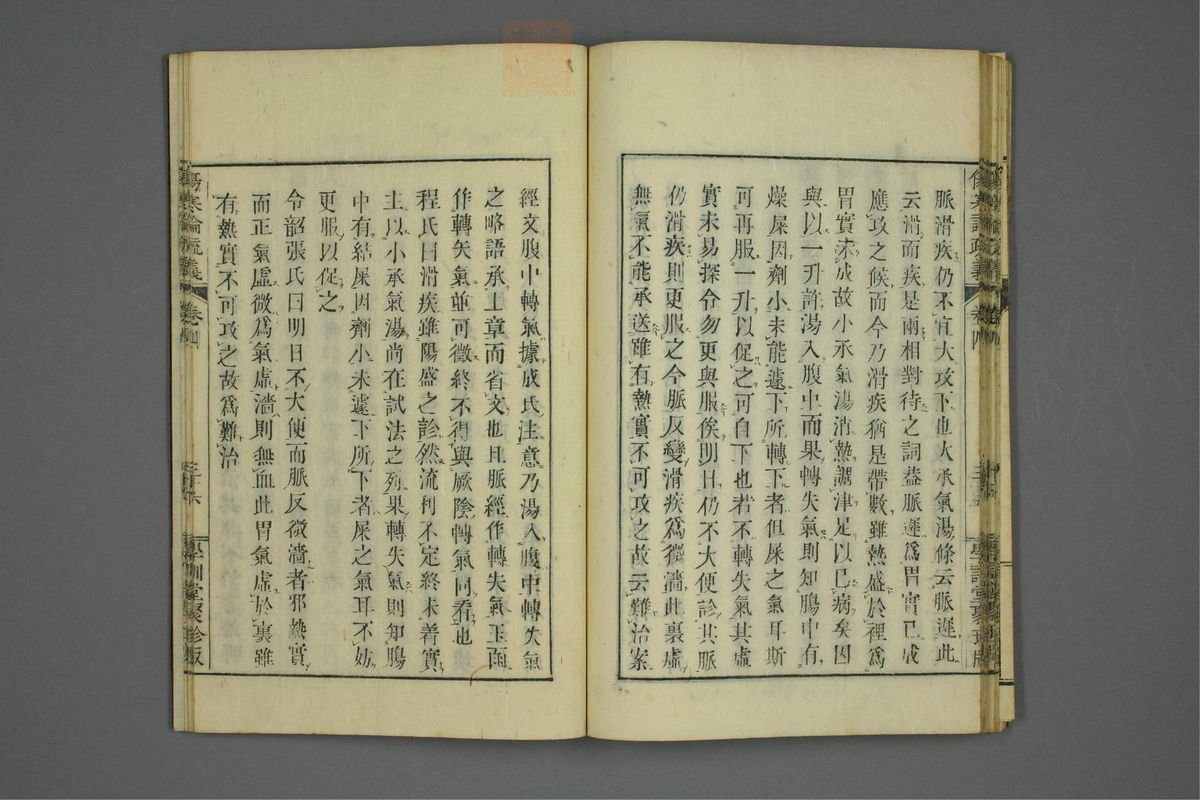 脈滑疾仍不宜大攻下也大承氣湯條云脈遲此
云滑而疾是兩相對待之詞蓋脈遲爲胃實已成
應攻之候而今乃滑疾猶是帶數雖熱盛於裡爲
胃實未成故小承氣湯消熱調津足以已病矣因
與以一升許湯入腹中而果轉失氣則知腸中有
燥屎因劑小未能遽下所轉下者但屎之氣耳斯
可再服一升以促之可自下也若不轉失氣其虛
實未易探令勿更與服俟明日仍不大便診其脈
仍滑疾則更服之今脈反變滑疾爲微濇此裏虛
無氣不能承送雖有熱實不可攻之故云難治案
經文腹中轉氣據成氏注意乃湯入腹中轉失氣
之略語承上章而省文也且脈經作轉失氣玉函
作轉矢氣並可徵終不得與厥陰轉氣同看也
程氏曰滑疾雖陽盛之診然流利不定終未着實
主以小承氣湯尚在試法之列果轉失氣則知腸
中有結屎因劑小未遽下所下者屎之氣耳不妨
更服以促之
令韶張氏曰明日不大便而脈反微濇者邪熱實
而正氣虛微爲氣虛濇則無血此胃氣虛於裏雖
有熱實不可攻之故爲難治
傷寒論疏義
卷四
三十六
學訓堂聚珍版